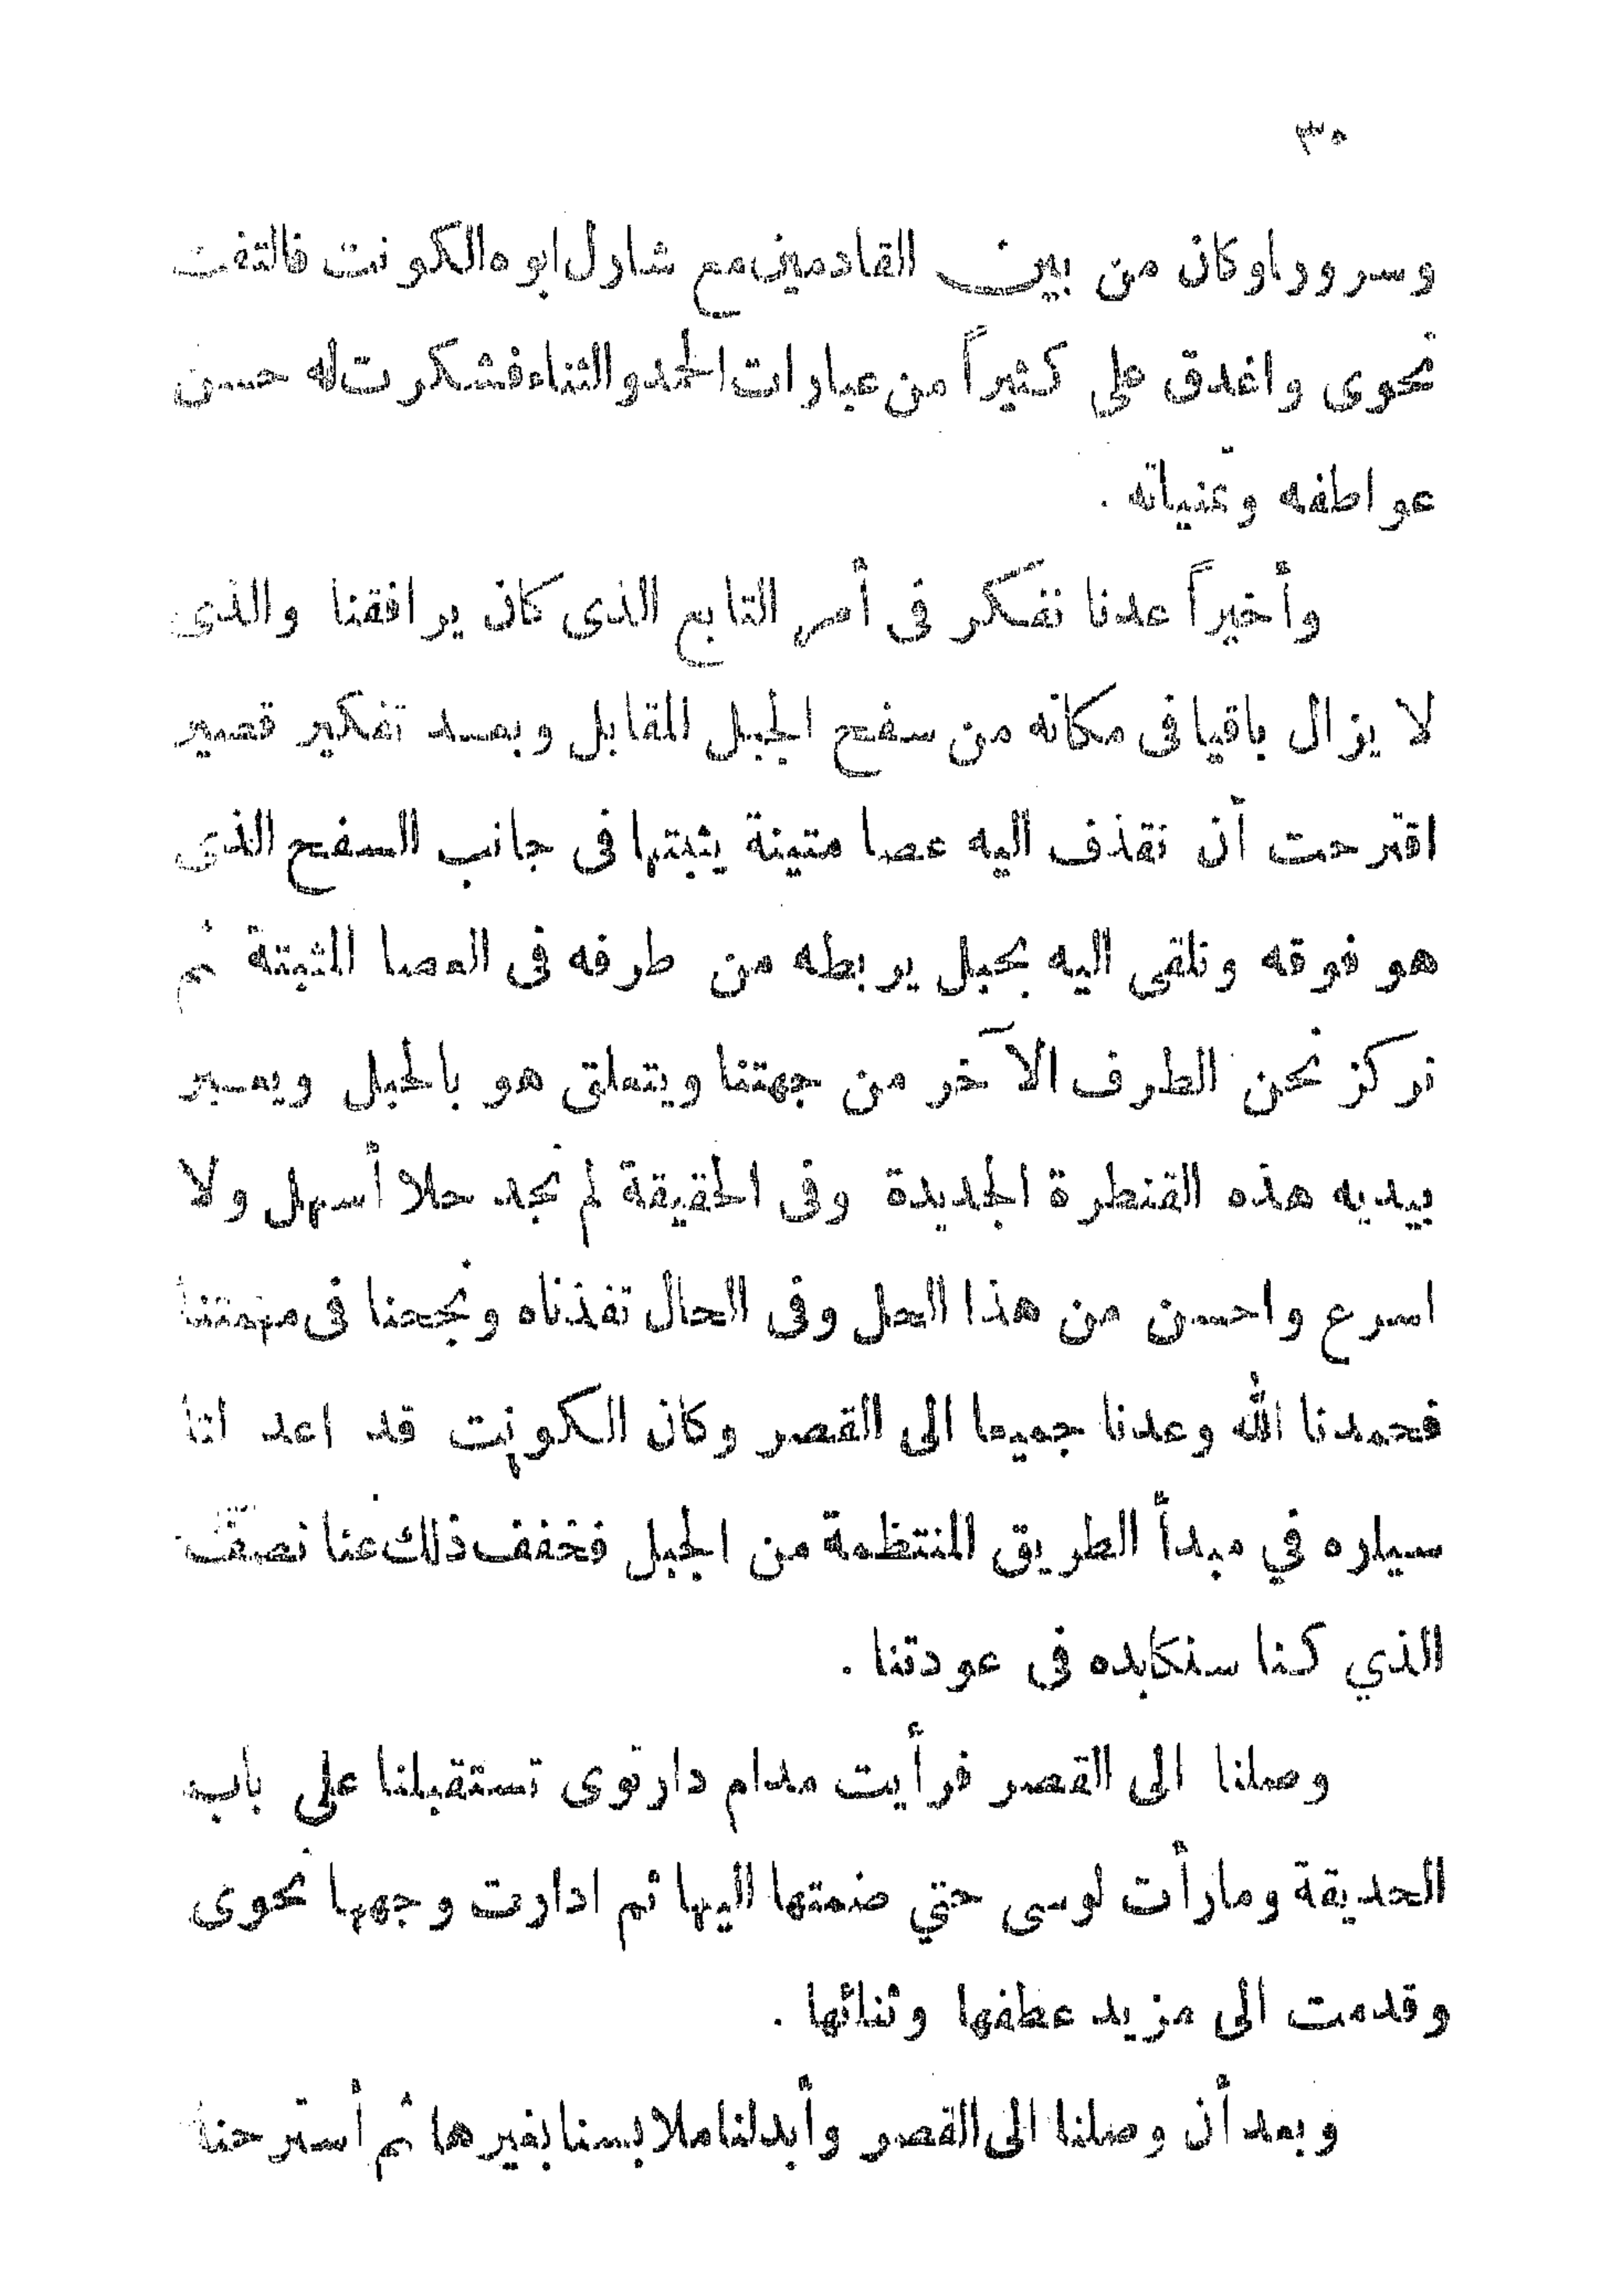 ٣٥
وسرورا وكان من بين القادمين مع شارل ابوه الكونت فالتفت
نحوى واغدق على كثيراً من عبارات الحمد والثناء فشكرت له حسن
عواطفه وتمنياته .
وأخيراً عدنا نفكر فى أمر التابع الذى كان يرافقنا والذى
لا يزال باقيا فى مكانه من سفح الجبل المقابل وبعد تفكير قصير
اقترحت أن نقذف اليه عصا متينة يثبتها فى جانب السفح الذى
هو فوقه ونلقى اليه بحبل يربطه من طرفه فى العصا المثبتة ثم
نركز نحن الطرف الآخر من جهتنا ويتعلق هو بالحبل ويعبر
بيديه هذه القنطرة الجديدة وفى الحقيقة لم نجد حلا أسهل ولا
اسرع واحسن من هذا الحل وفى الحال نفذناه ونجحنا فى مهمتنا
فحمدنا الله وعدنا جميعا الى القصر وكان الكونت قد اعد لنا
سياره في مبدأ الطريق المنتظمة من الجبل فخفف ذلك عنا نصف
الذي كنا سنكابده فى عودتنا .
وصلنا الى القصر فرأيت مدام دارتوى تستقبلنا على باب
الحديقة ومارأت لوسى حتي ضمتها اليها ثم ادارت وجهها نحوى
وقدمت الى مزيد عطفها وثنائها .
وبعد أن وصلنا الى القصر وأبدلنا ملابسنا بغيرها ثم أسترحنا